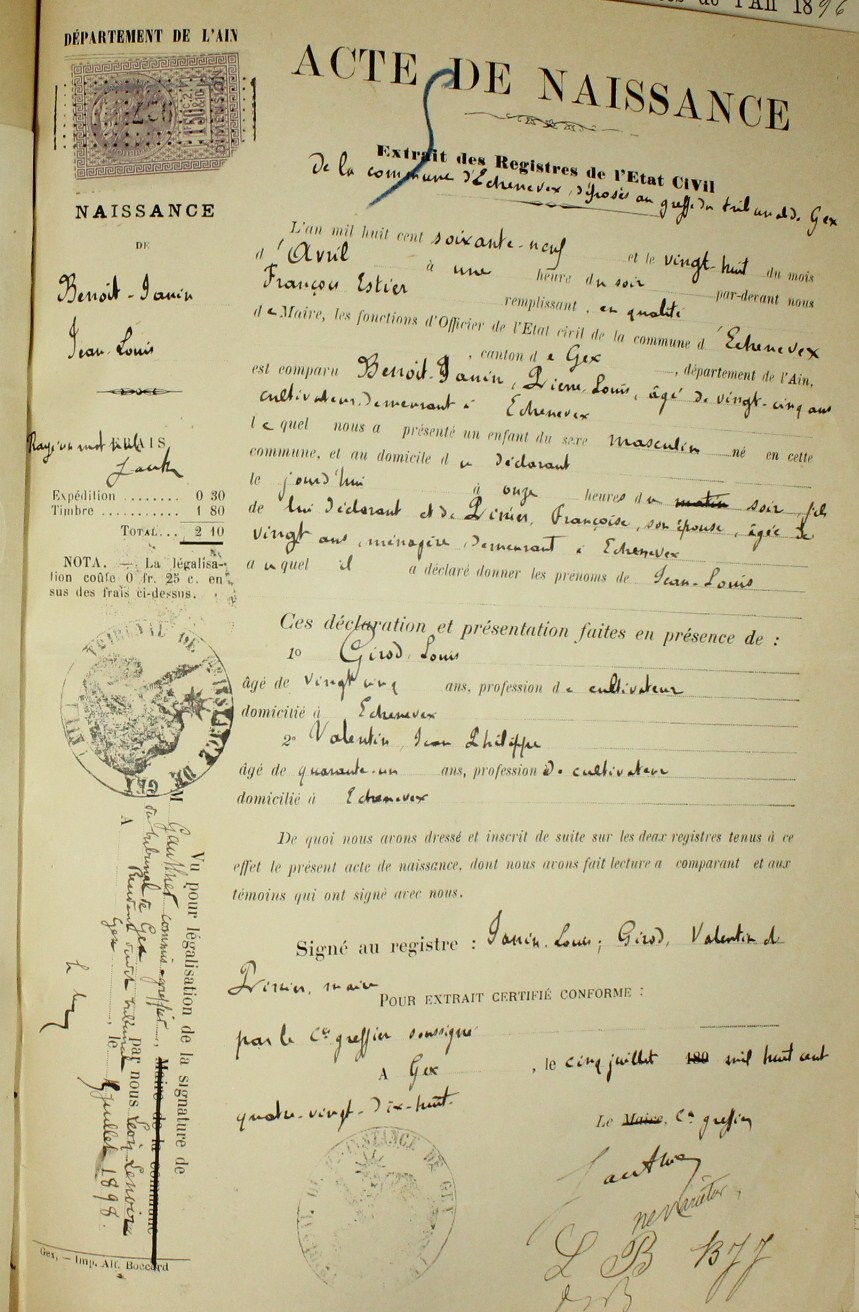 de l'An 1896
DÉPARTEMENT DE L'AIN
NAISSANCE
DE
Benoit-Janin
Jean-Louis
Rayé un mot nul
Expédition ........ 0 30
Timbre ........... 1 80
TOTAL... 2 10
NOTA. — La légalisa-
tion coûte 0 fr. 25 c. en
sus des frais ci-dessus.
TRIBUNAL DE 1re INSTANCE DE GEX
Vu pour légalisation de la signature de
M Gauthier commis-greffier, Maire de la commune
du tribunal de Gex par nous Léon Lenoir
Président dudit tribunal
A Gex, le 5 juillet 1898
Gex, — Imp. Alf. Boccard
ACTE DE NAISSANCE
Extrait des Registres de l'Etat Civil
de la commune d'Echenevex, déposés au greffe du tribunal de Gex
L'an mil huit cent soixante-neuf et le vingt-huit du mois
d'Avril à une heure du soir par-devant nous
François Estier remplissant, en qualité
de Maire, les fonctions d'Officier de l'Etat civil de la commune d'Echenevex
, canton de Gex, département de l'Ain,
est comparu Benoit-Janin, Pierre-Louis, âgé de vingt-cinq ans
cultivateur, demeurant à Echenevex
lequel nous a présenté un enfant du sexe masculin né en cette
commune, et au domicile du déclarant
le jourd'hui à onze heures du matin soir, fils
de lui déclarant et de Françoise, son épouse, âgée de
vingt ans, ménagère, demeurant à Echenevex
auquel il a déclaré donner les prénoms de Jean-Louis
Ces déclaration et présentation faites en présence de :
1° Girod, Louis
âgé de vingt cinq ans, profession de cultivateur
domicilié à Echenevex
2° Valentin, Jean Philippe
âgé de quarante-un ans, profession de cultivateur
domicilié à Echenevex
De quoi nous avons dressé et inscrit de suite sur les deux registres tenus à ce
effet le présent acte de naissance, dont nous avons fait lecture a comparant et aux
témoins qui ont signé avec nous.
Signé au registre : Janin-Louis; Girod, Valentin de
maire
POUR EXTRAIT CERTIFIÉ CONFORME :
par le Cs greffier soussigné
A Gex, le cinq juillet 189 mil huit cent
quatre-vingt-dix-huit.
Le Maire, Cs greffier
Gauthier
ne varietur
L B BJJ